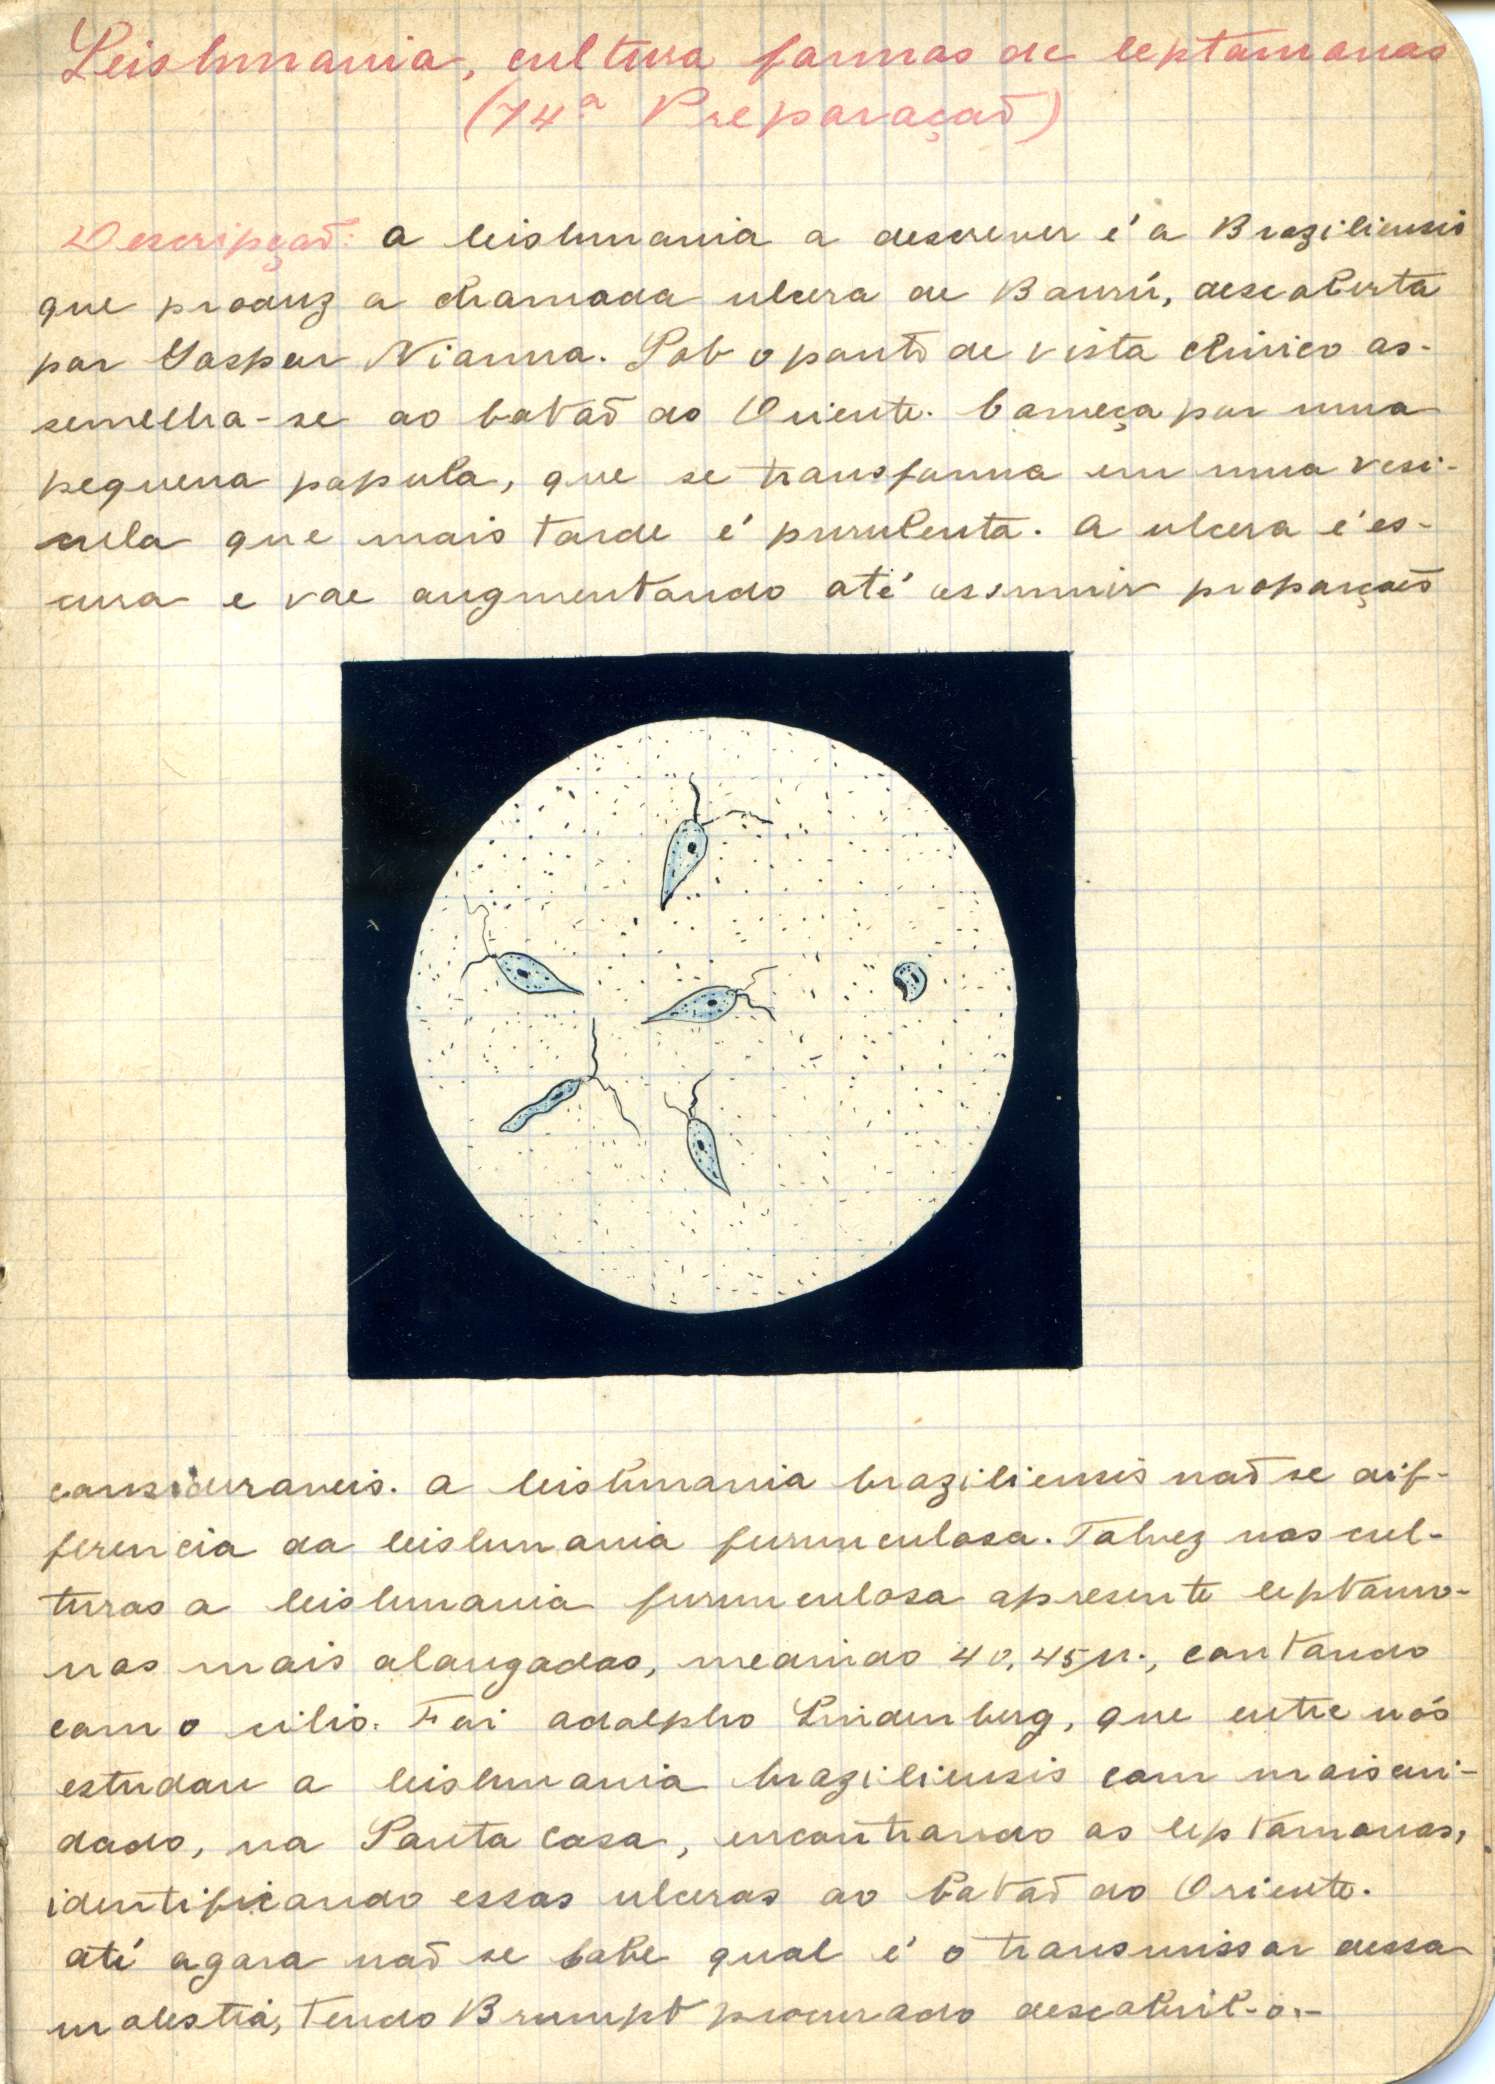 Leishmania, cultura formas de leptomonas
(74ª Preparação)
Descripção: A leishmania a descrever é a Braziliensis
que produz a chamada ulcera de Baurú, descoberta
por Gaspar Vianna. Sob o ponto de vista clinico as-
semelha-se ao botão do Oriente. Começa por uma
pequena papula, que se transforma em uma vesi-
cula que mais tarde é purulenta. A ulcera é es-
cura e vae augmentando até assumir proporções
consideraveis. A leishmania braziliensis não se dif-
ferencia da leishmania furunculosa. Talvez nas cul-
turas a leishmania furunculosa apresente leptomo-
nas mais alongadas, medindo 40, 45 µ., contando
com o cilio. Foi Adolpho Lindenberg, que entre nós
estudou a leishmania braziliensis com mais cui-
dado, na Santa Casa, encontrando as leptomonas,
identificando essas ulceras ao botão do Oriente.
Até agora não se sabe qual é o transmissor dessa
molestia, tendo Brumpt procurado descobril-o.-